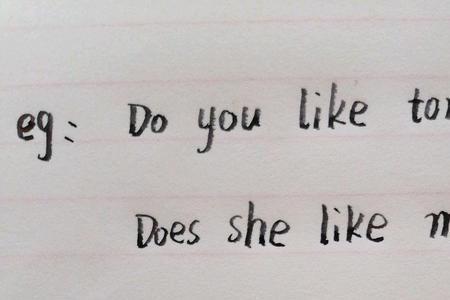 eg: Do you like
Does she like